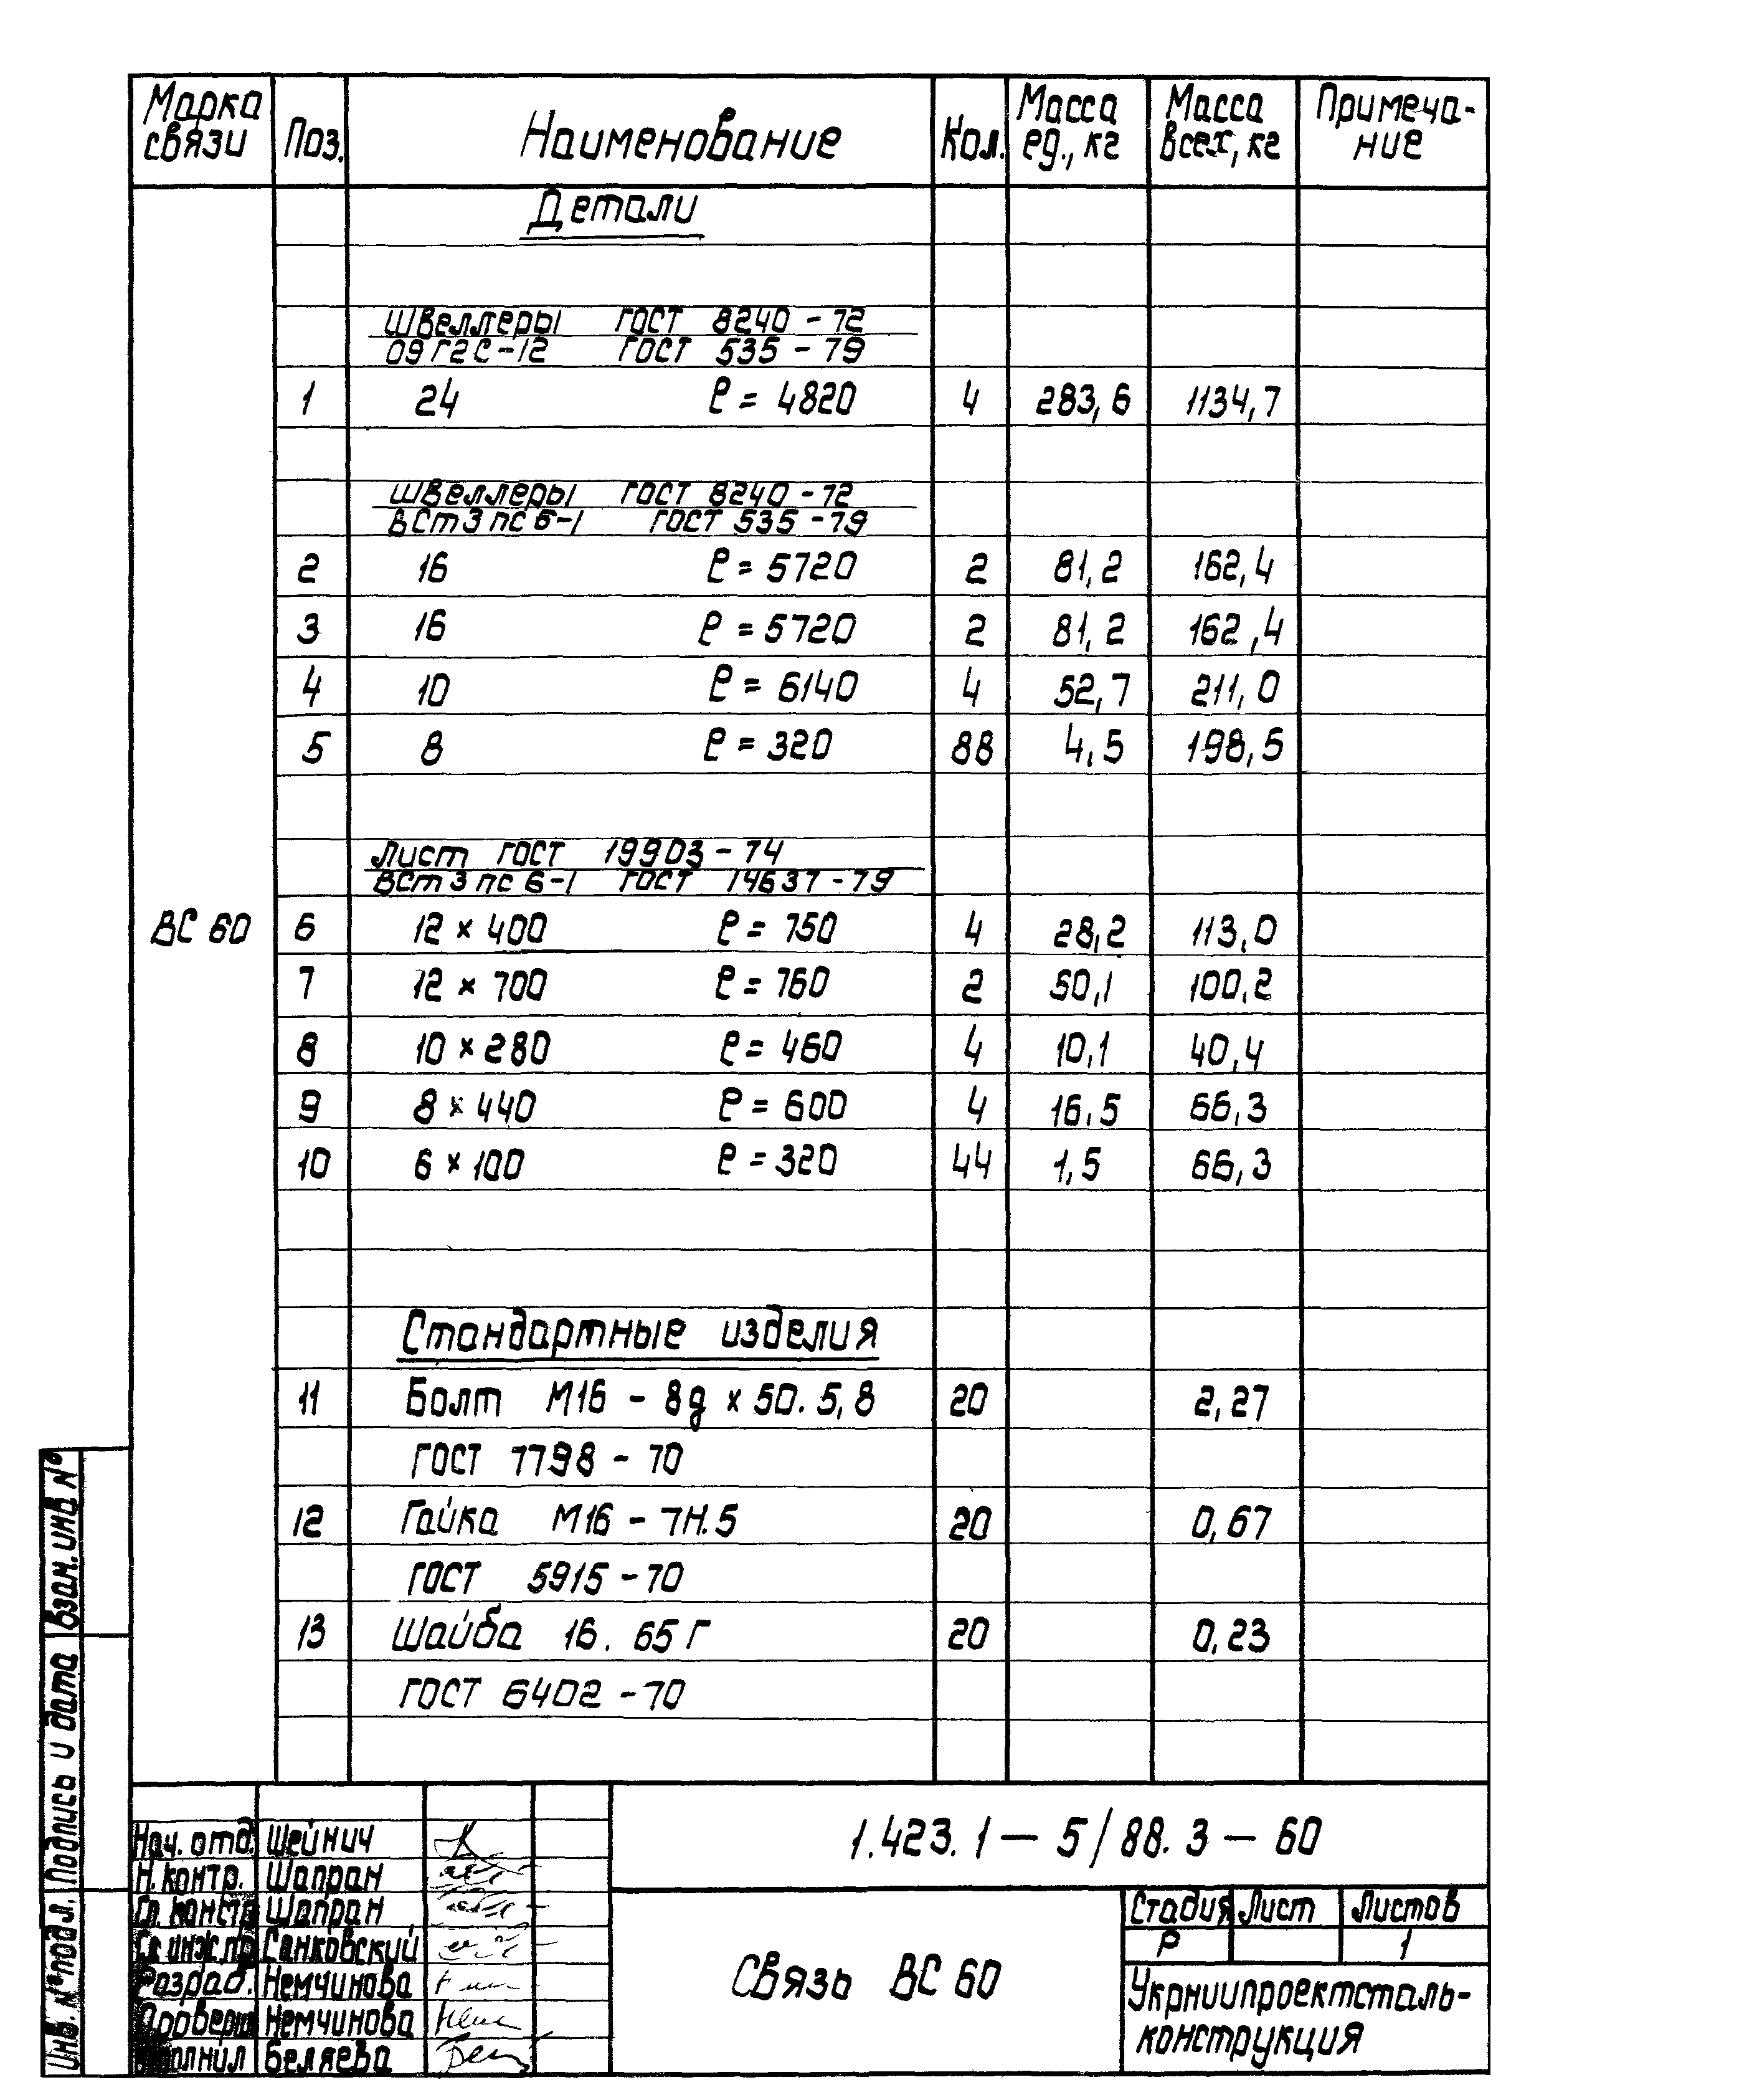 Марка связи Поз. Наименование Кол. Масса ед., кг Масса всех, кг Примечание
Детали
Швеллеры ГОСТ 8240-72
09Г2С-12 ГОСТ 535-79
1 24 ℓ = 4820 4 283,6 1134,7
Швеллеры ГОСТ 8240-72
ВСт3пс6-1 ГОСТ 535-79
2 16 ℓ = 5720 2 81,2 162,4
3 16 ℓ = 5720 2 81,2 162,4
4 10 ℓ = 6140 4 52,7 211,0
5 8 ℓ = 320 88 4,5 198,5
Лист ГОСТ 19903-74
ВСт3пс6-1 ГОСТ 14637-79
ВС 60 6 12 × 400 ℓ = 750 4 28,2 113,0
7 12 × 700 ℓ = 760 2 50,1 100,2
8 10 × 280 ℓ = 460 4 10,1 40,4
9 8 × 440 ℓ = 600 4 16,5 66,3
10 6 × 100 ℓ = 320 44 1,5 66,3
Стандартные изделия
11 Болт М16 - 8g × 50. 5,8 20 2,27
ГОСТ 7798-70
12 Гайка М16 - 7Н.5 20 0,67
ГОСТ 5915-70
13 Шайба 16. 65Г 20 0,23
ГОСТ 6402-70
Взам. инв №
Подпись и дата
Инв. № подл.
Нач. отд. Шейнич
Н. контр. Шапран
Гл. констр Шапран
Гл. инж. пр. Санковский
Разраб. Немчинова
Провери Немчинова
Беляева
1.423.1 — 5/88.3 — 60
Связь ВС 60
Стадия Лист Листов
Р 1
Укрниипроектсталь-
конструкция